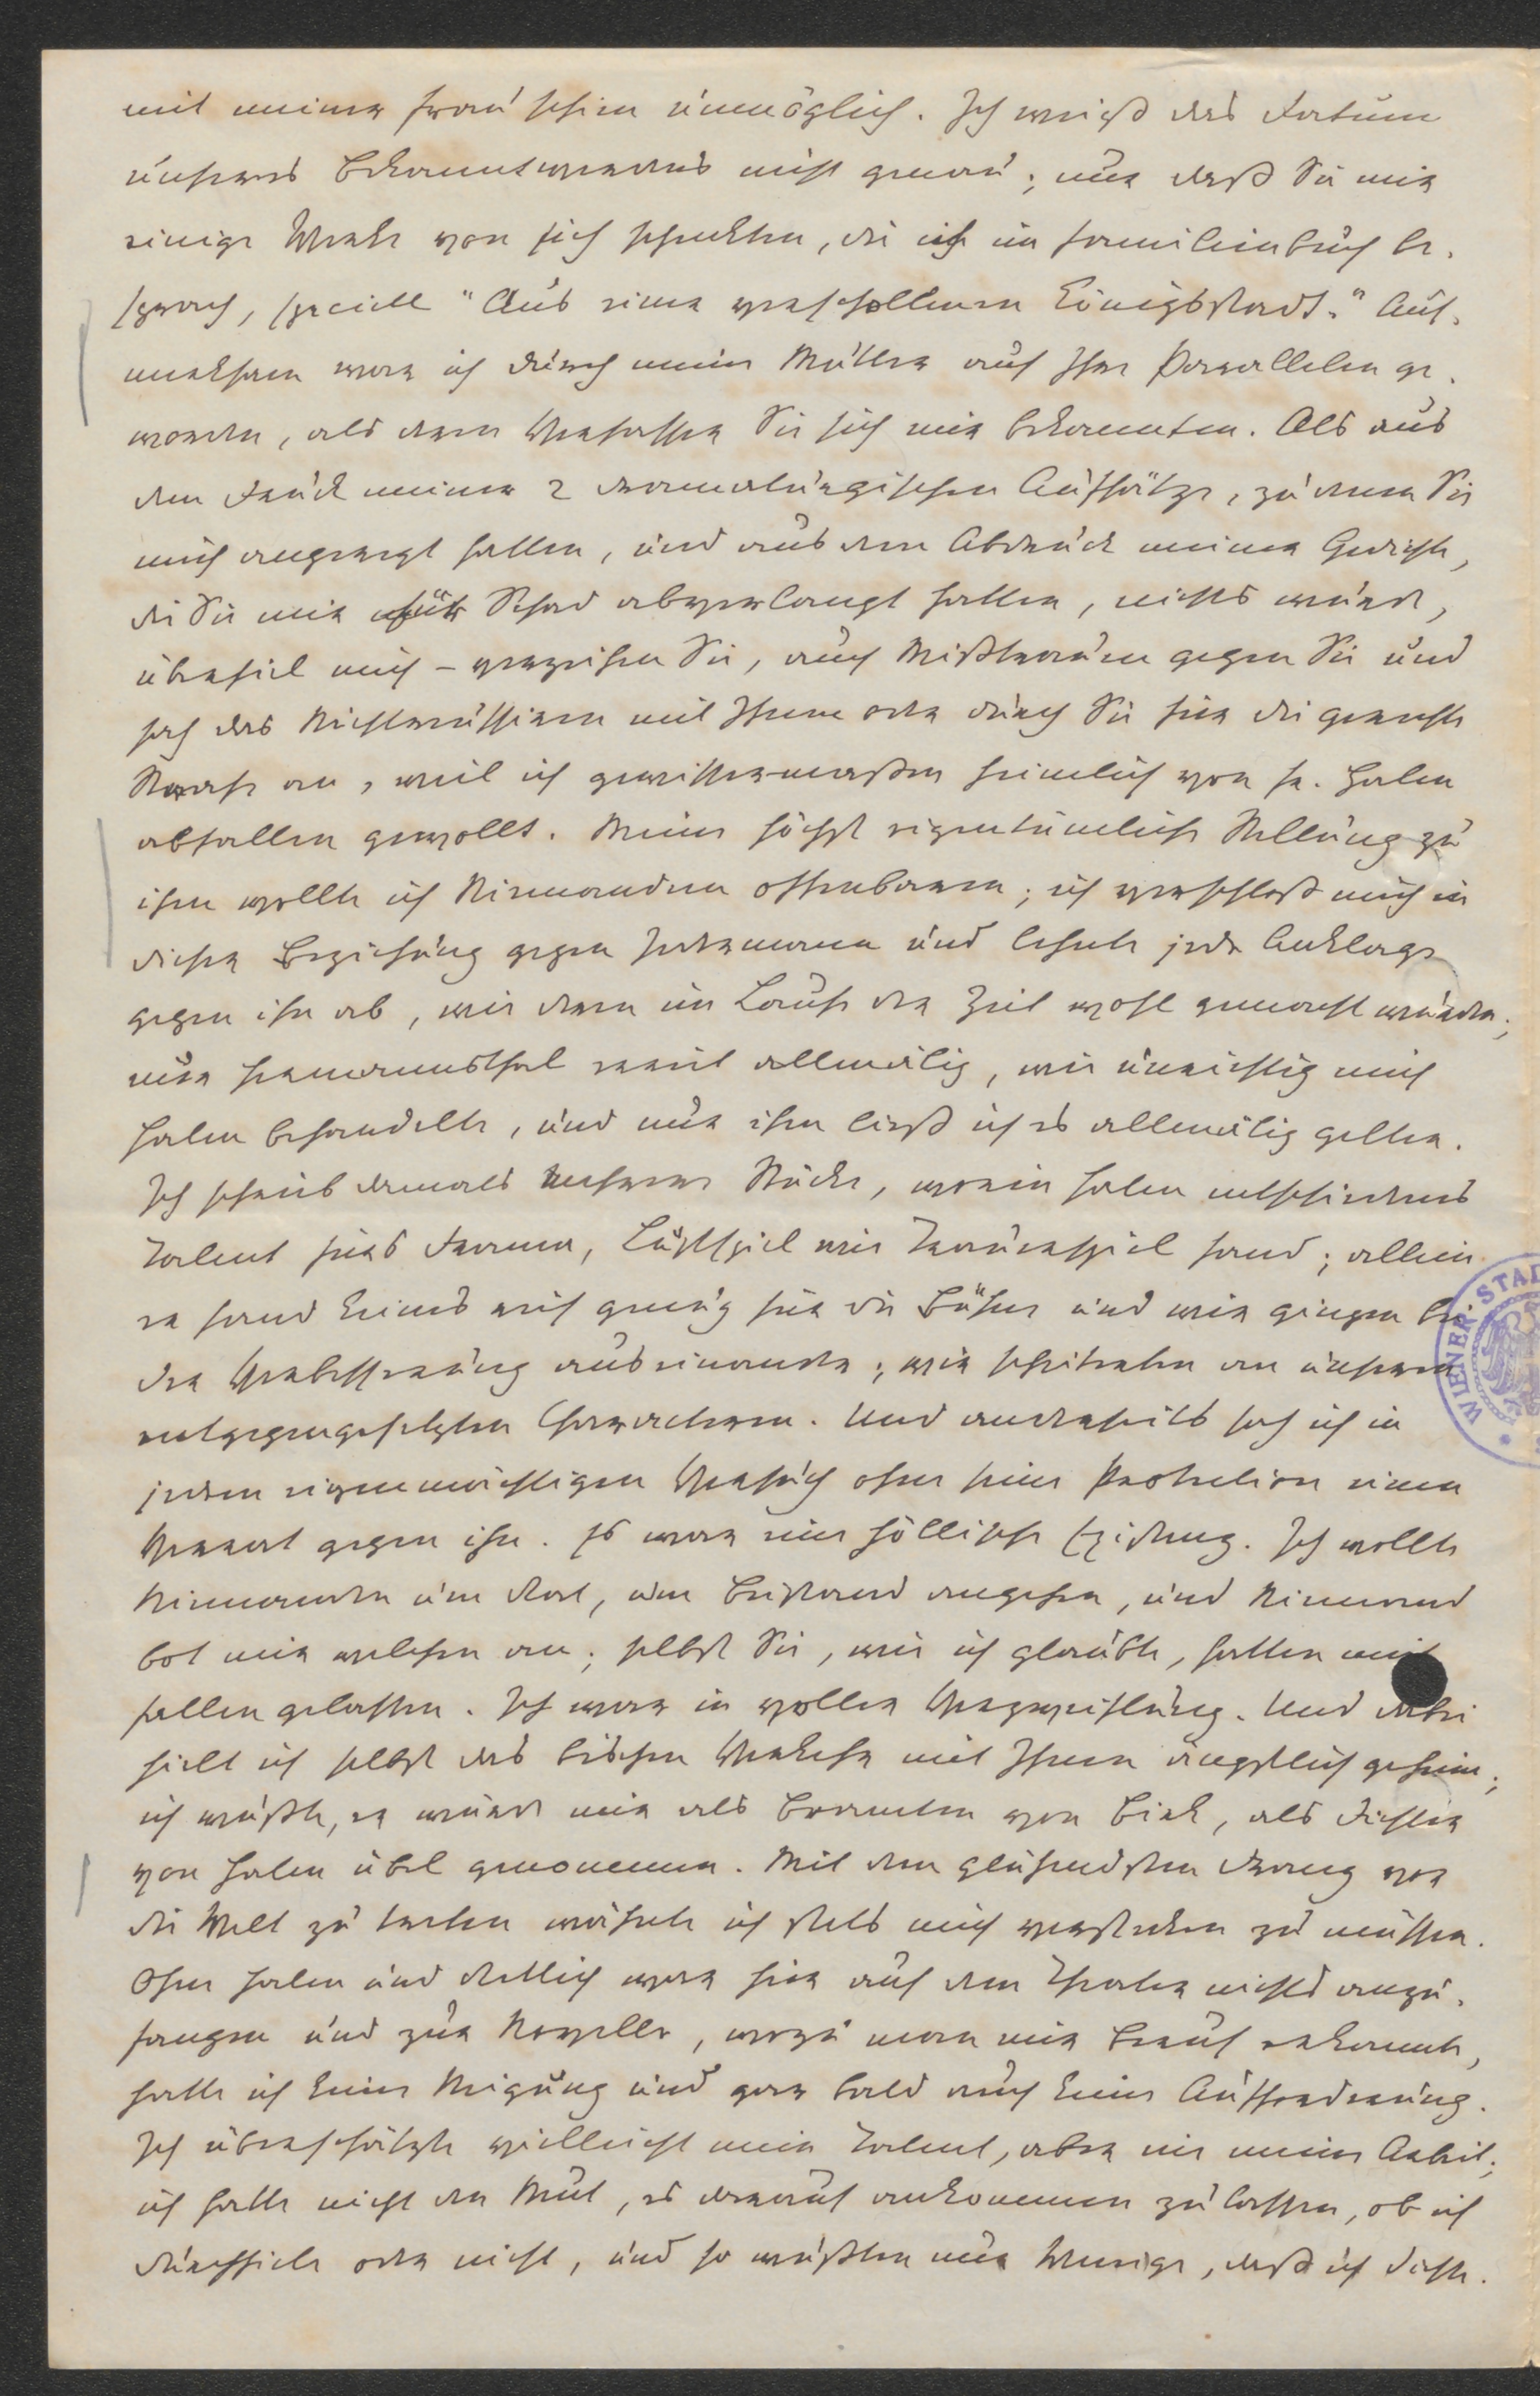 mit meiner Frau schien unmöglich. Ich weiß das Datum
unseres Bekanntwerdens nicht genau; nur daß Sie mir
einige Werke von sich schickten, die ich im Familienbuch be-
sprach, speciell "Aus einer verschollenen Königsstadt." Auf-
merksam war ich durch meine Mutter auf Ihre Parallelen ge-
worden, als deren Verfasser Sie sich mir bekannten. Als aus
dem Druck meiner 2 dramaturgischen Aufsätze, zu denen Sie
mich angeregt hatten, und aus dem Abdruck meiner Gedichte,
die Sie mir für Schad abverlangt hatten, nichts wurde,
überfiel mich – verzeihen Sie, auch Mißtrauen gegen Sie und
sah das Nichtreussieren mit Ihnen oder durch Sie für die gerechte
Strafe an, weil ich gewissermaßen heimlich von Fr. Halm
abfallen gewollt. Meine höchst eigentümliche Stellung zu
ihm wollte ich Niemandem offenbaren; ich verschloß mich in
dieser Beziehung gegen Jedermann und lehnte jede Anklage
gegen ihn ab, wie deren im Laufe der Zeit wohl gemacht wurden;
nur Hermannsthal erriet allmälig, wie unrichtig mich
Halm behandelte, und nur ihm ließ ich es allmälig gelten.
Ich schrieb damals mehrere Stücke, worin Halm entschiedenes
Talent fürs Drama, Lustspiel wie Trauerspiel fand; allein
er fand keines reif genug für die Bühne und wir gingen bei
der Verbesserung auseinander; wir scheiterten an unseren
entgegengesetzten Charakteren. Und anderseits sah ich in
jedem eigenmächtigen Versuch ohne seine Protection einen
Verrat gegen ihn. Es war eine höllische Erziehung. Ich wollte
Niemanden um Rat, um Beistand angehen, und Niemand
bot mir welchen an; selbst Sie, wie ich glaubte, hatten mich
fallen gelassen. Ich war in voller Verzweiflung. Und dabei
hielt ich selbst das bischen Verkehr mit Ihnen ängstlich geheim;
ich wußte, es würde mir als Beamten von Birk, als Dichter
von Halm übel genommen. Mit dem glühendsten Drang vor
die Welt zu treten wähnte ich stets mich verstecken zu müssen.
Ohne Halm und Rettich war hier auf dem Theater nichts anzu-
fangen und zur Novelle, wozu man mir Beruf erkannte,
hatte ich keine Neigung und gar bald auch keine Aufforderung.
Ich überschätzte vielleicht mein Talent, aber nie meine Arbeit;
ich hatte nicht den Mut, es darauf ankommen zu lassen, ob ich
durchfiele oder nicht, und so wußten nur Wenige, daß ich dichte.
WIENER STAD